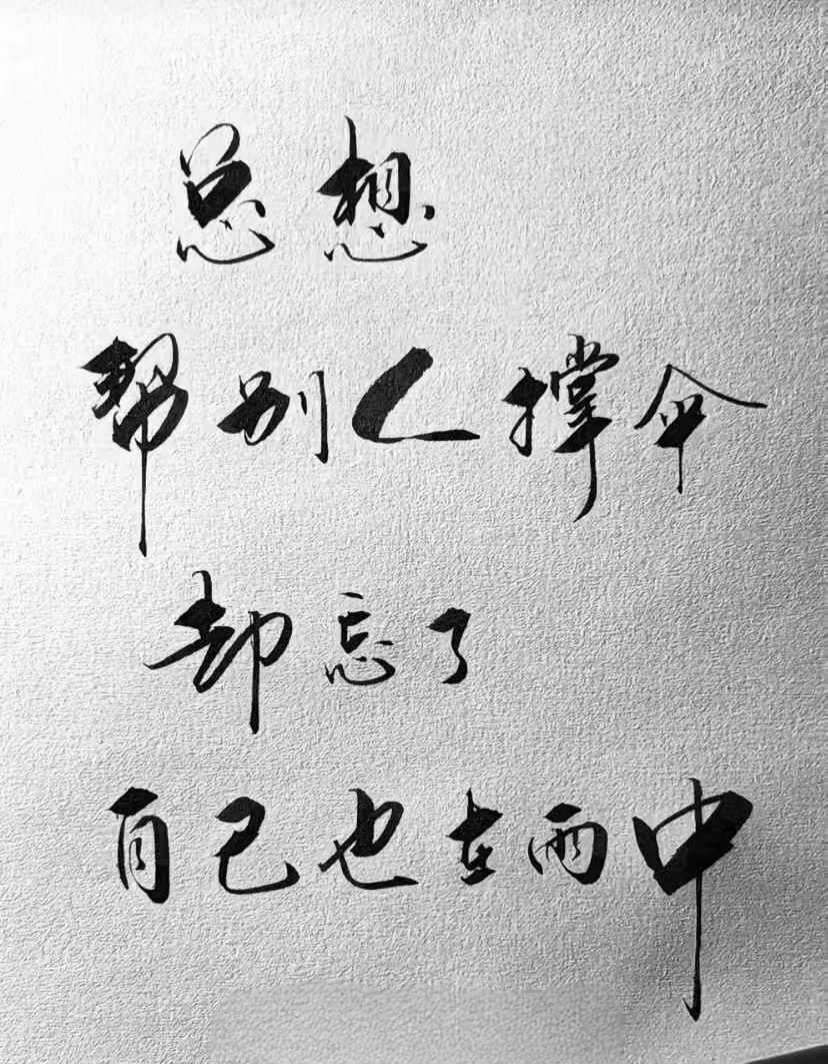 总想
帮别人撑伞
却忘了
自己也在雨中